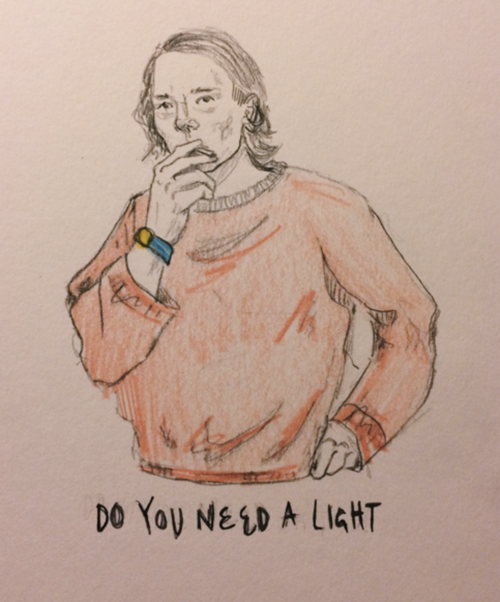 DO YOU NEED A LIGHT